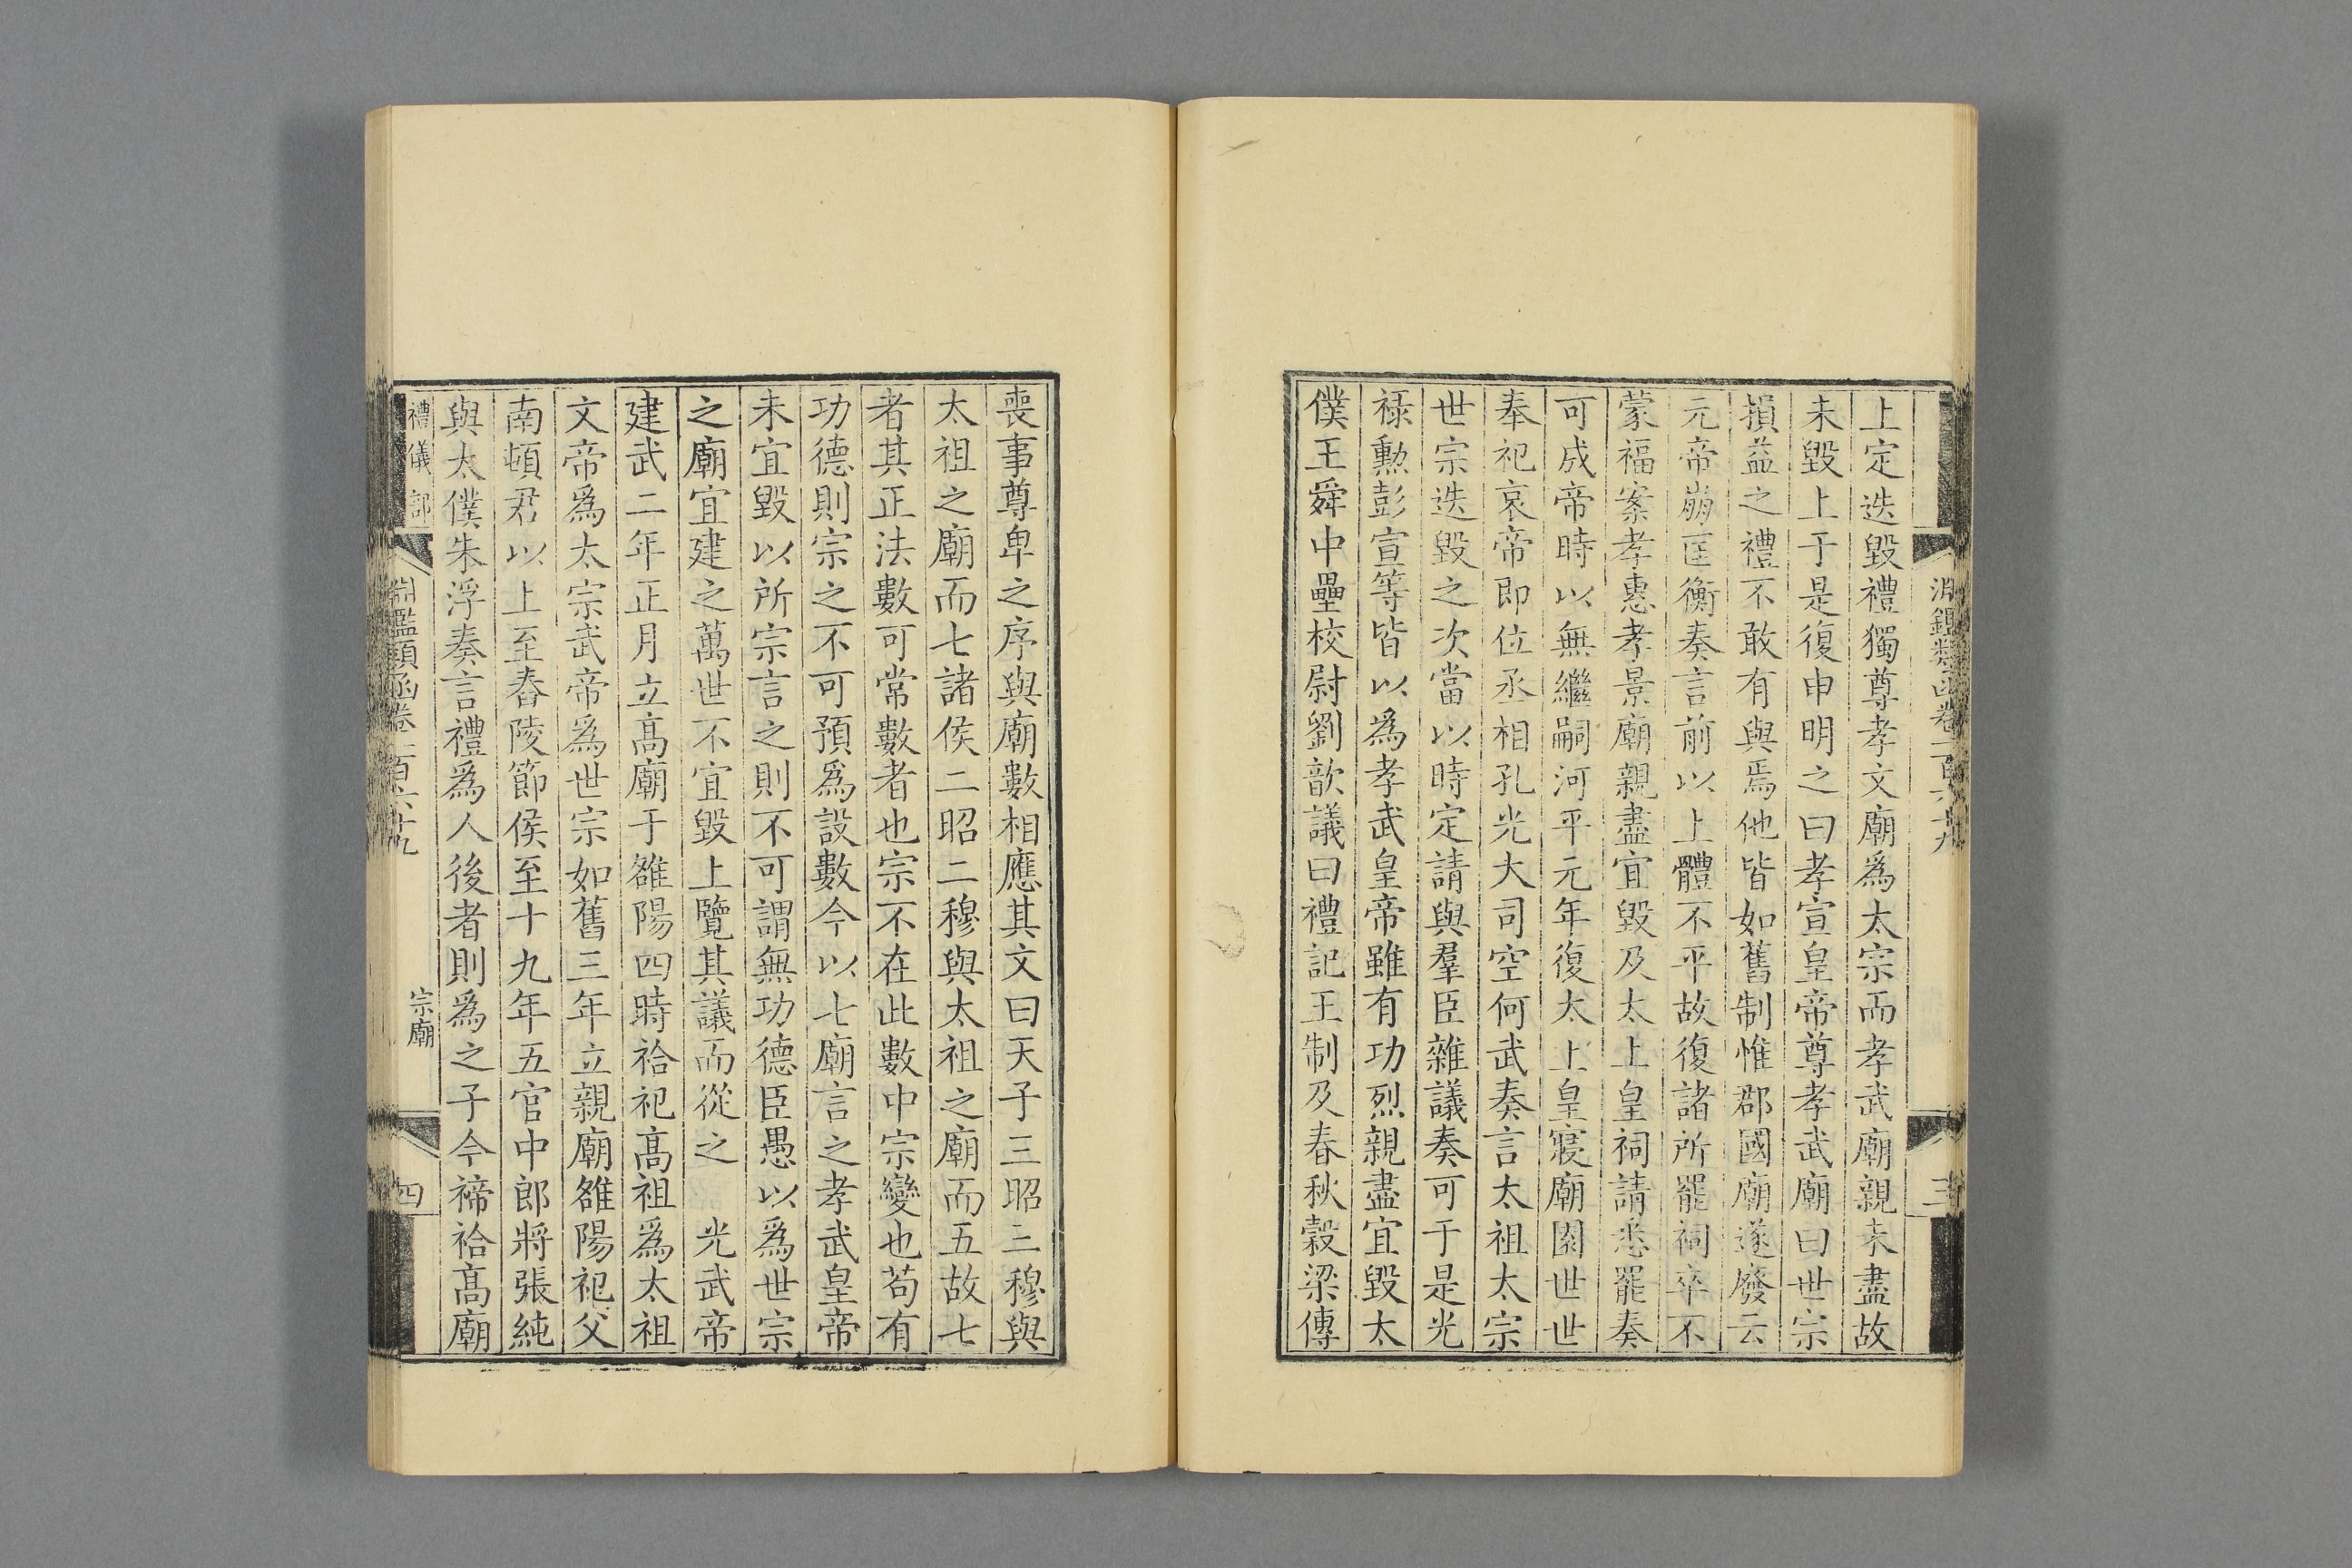 淵鑑類函卷一百六十九
三
上定迭毀禮獨尊孝文廟爲太宗而孝武廟親未盡故
未毀上于是復申明之曰孝宣皇帝尊孝武廟曰世宗
損益之禮不敢有與焉他皆如舊制惟郡國廟遂廢云
元帝崩匡衡奏言前以上體不平故復諸所罷祠卒不
蒙福案孝惠孝景廟親盡宜毀及太上皇祠請悉罷奏
可成帝時以無繼嗣河平元年復太上皇寢廟園世世
奉祀哀帝即位丞相孔光大司空何武奏言太祖太宗
世宗迭毀之次當以時定請與羣臣雜議奏可于是光
祿勳彭宣等皆以爲孝武皇帝雖有功烈親盡宜毀太
僕王舜中壘校尉劉歆議曰禮記王制及春秋穀梁傳
喪事尊卑之序與廟數相應其文曰天子三昭三穆與
太祖之廟而七諸侯二昭二穆與太祖之廟而五故七
者其正法數可常數者也宗不在此數中宗變也苟有
功德則宗之不可預爲設數今以七廟言之孝武皇帝
未宜毀以所宗言之則不可謂無功德臣愚以爲世宗
之廟宜建之萬世不宜毀上覽其議而從之 光武帝
建武二年正月立髙廟于雒陽四時祫祀髙祖爲太祖
文帝爲太宗武帝爲世宗如舊三年立親廟雒陽祀父
南頓君以上至舂陵節侯至十九年五官中郎將張純
與太僕朱浮奏言禮爲人後者則爲之子今禘祫髙廟
禮儀部
淵鑑類函卷一百六十九
宗廟
四